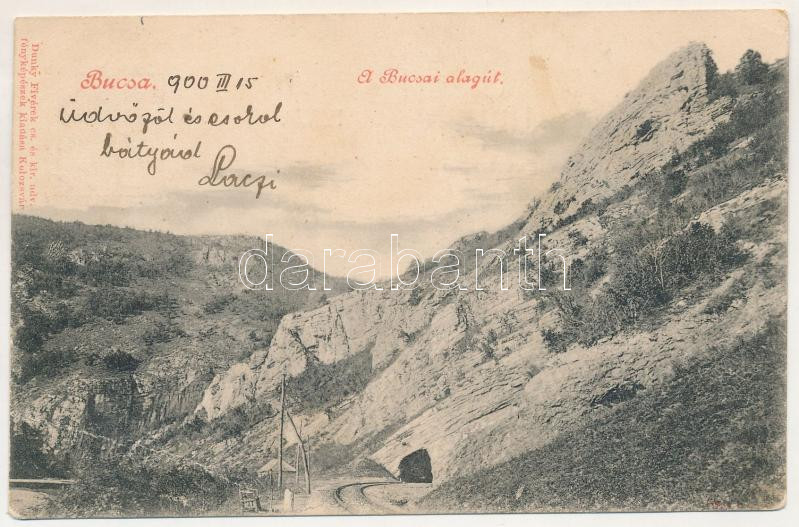 Dunky Fivérek cs. és kir. udv.
fényképészek kiadása Kolozsvár
Bucsa. 900 III 15
A Bucsai alagút.
üdvözöl és csokol
bátyád
Laczi
darabanth